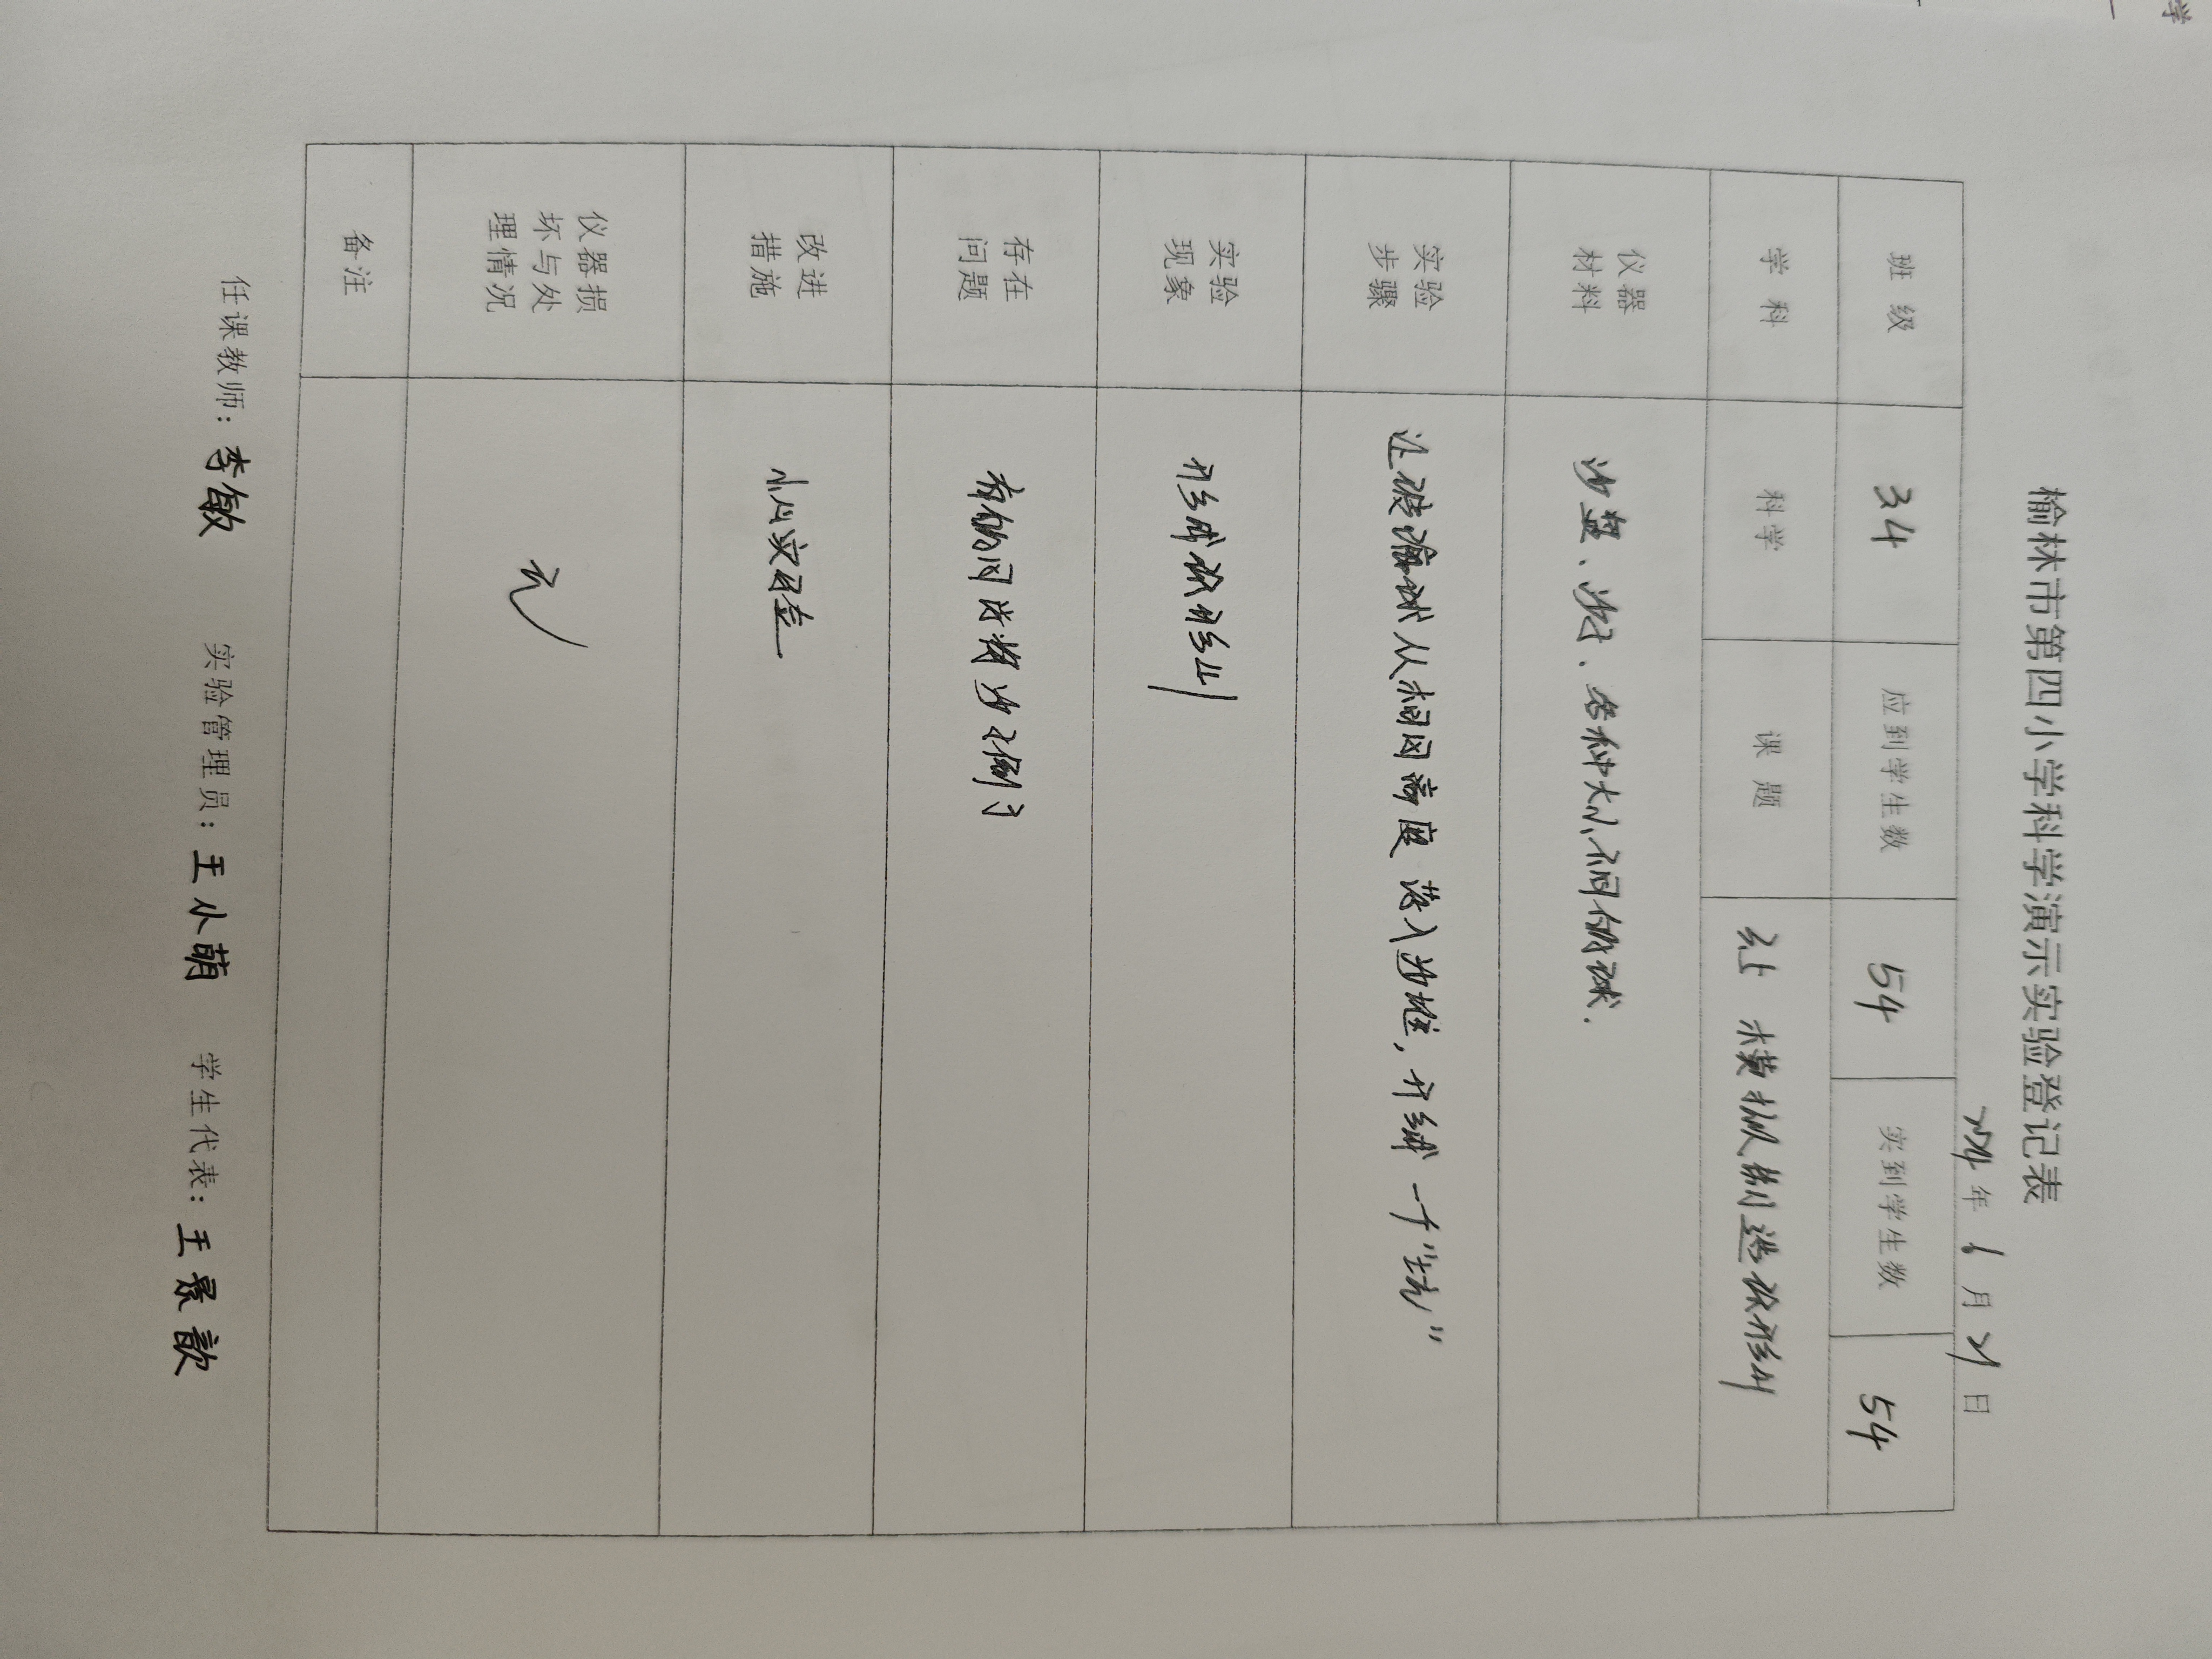 榆林市第四小学科学演示实验登记表
2024年1月21日
班级 3.4 应到学生数 54 实到学生数 54
学科 科学 课题 三上 模拟制造环形山
仪器材料 沙盘、沙子、各种大小不同的球.
实验步骤 让玻璃球从相同高度落入沙堆,形成一个"坑"
实验现象 形成环形山
存在问题 有的同学将沙子倒了
改进措施 小心实验
仪器损坏与处理情况 无
备注
任课教师: 李敏 实验管理员: 王小萌 学生代表: 王景歆
学